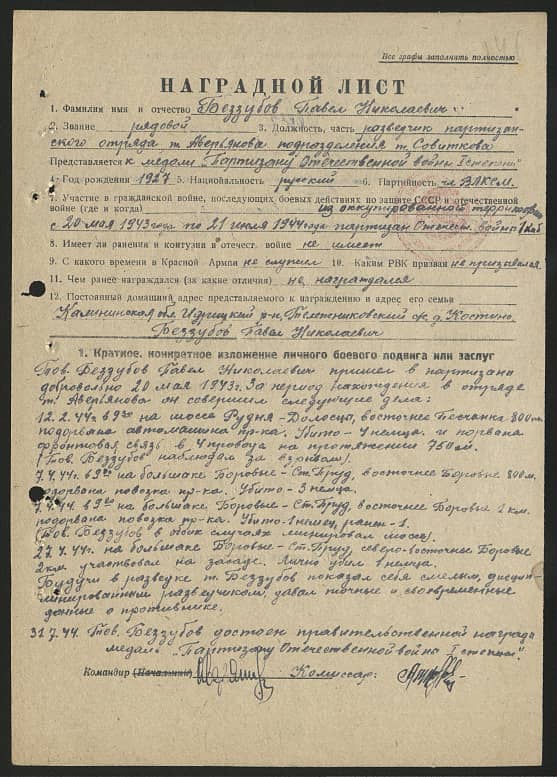 Все графы заполнить полностью
НАГРАДНОЙ ЛИСТ
1. Фамилия имя и отчество Беззубов Павел Николаевич
2. Звание рядовой 3. Должность, часть разведчик партизан-
ского отряда т. Аверьянова подразделения т. Совиткова
Представляется к медали "Партизану Отечественной войны I степени"
4. Год рождения 1927 5. Национальность русский 6. Партийность чл. ВЛКСМ.
7. Участие в гражданской войне, последующих боевых действиях по защите СССР и отечественной
войне (где и когда) на оккупированной территории
с 20 мая 1943 года по 21 июля 1944 года партизан Отечест. войны
8. Имеет ли ранения и контузии в отечест. войне не имеет
9. С какого времени в Красной Армии не служил 10. Каким РВК призван не призывался
11. Чем ранее награждался (за какие отличия) не награждался
12. Постоянный домашний адрес представляемого к награждению и адрес его семьи
Калининская обл. Идрицкий р-н, с/с, д. Костино
Беззубов Павел Николаевич
1. Краткое, конкретное изложение личного боевого подвига или заслуг
Тов. Беззубов Павел Николаевич пришел в партизаны
добровольно 20 мая 1943г. За период нахождения в отряде
т. Аверьянова он совершил следующие дела:
12.2.44г. в 9 00 на шоссе Рудня-Долосца, восточнее Песчанка 800м.
подорвана автомашина пр-ка. Убито - 4 немца. и порвана
фронтовая связь в 4 провода на протяжении 750м.
(Тов. Беззубов наблюдал за взрывом).
7.4.44г. в 9 00 на большаке Боровые - Ст. Пруд, восточнее Боровые 800м.
подорвана повозка пр-ка. Убито - 3 немца.
7.4.44 в 9 00 на большаке Боровые - Ст. Пруд, восточнее Боровые 2 км.
подорвана повозка пр-ка. Убито 1 немец, ранен - 1.
(Тов. Беззубов в обоих случаях минировал шоссе).
27.4.44г. на большаке Боровые - Ст. Пруд, северо-восточнее Боровые
2км участвовал на засаде. Лично убил 1 немца.
Будучи в разведке т. Беззубов показал себя смелым, дисцип-
линированным разведчиком, давал точные и своевременные
данные о противнике.
31.7.44. Тов. Беззубов достоен правительственной награды
медаль "Партизану Отечественной войны I степени".
Командир (Начальник) Комиссар: